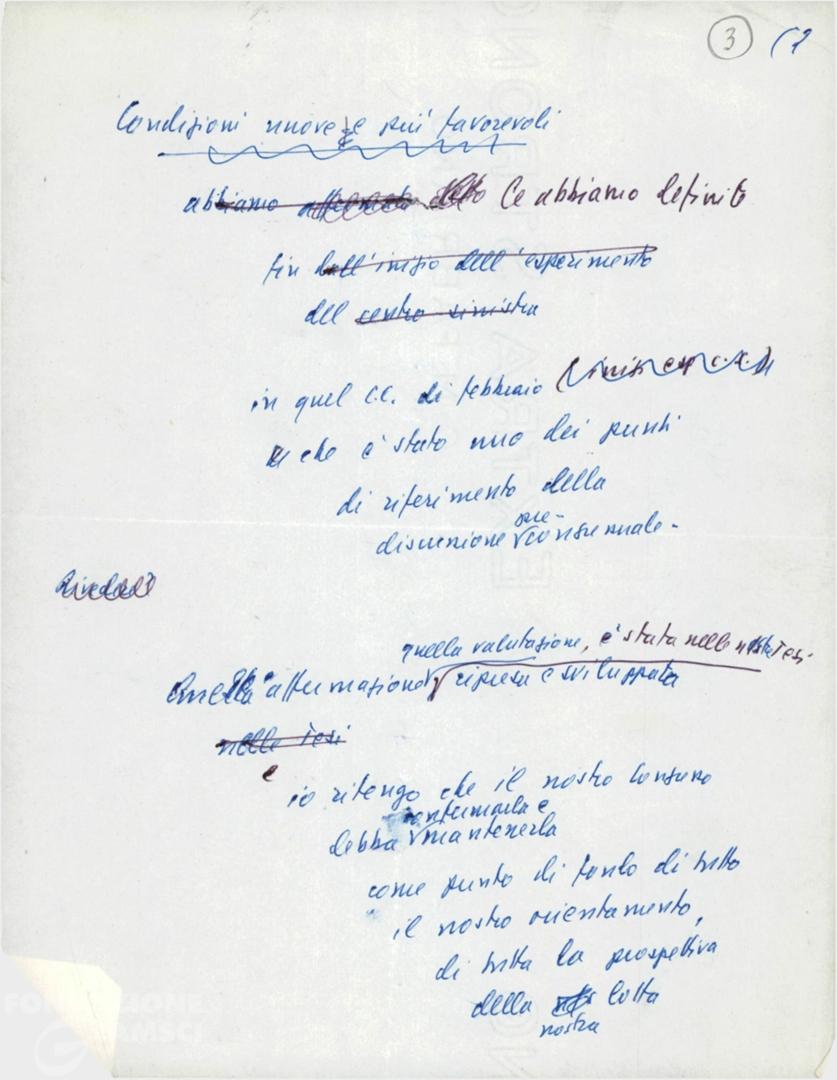 3
Condizioni nuove e più favorevoli
abbiamo affermato detto Le abbiamo definite
fin dall'inizio dell'esperimento
del centro sinistra
in quel C.C. di febbraio
che è stato uno dei punti
di riferimento della
discussione pre-congressuale-
quella valutazione, è stata nelle nostre Tesi
Quella affermazione ripresa e sviluppata
nelle Tesi
e
io ritengo che il nostro Congresso
confermarla e
debba mantenerla
come punto di fondo di tutto
il nostro orientamento,
di tutta la prospettiva
della lotta
nostra
FONDAZIONE
GRAMSCI